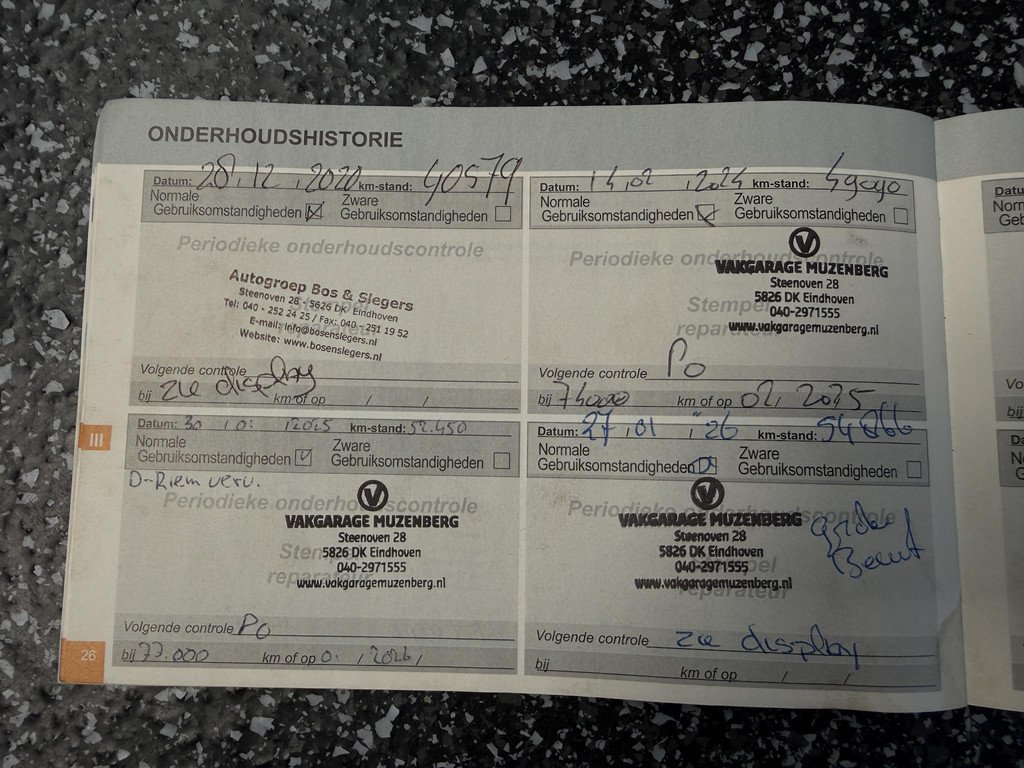 ONDERHOUDSHISTORIE
Datum: 28 . 12 . 2020 km-stand: 40579
Normale Gebruiksomstandigheden
Zware Gebruiksomstandigheden
Periodieke onderhoudscontrole
Autogroep Bos & Slegers
Steenoven 28 - 5626 DK Eindhoven
Tel: 040 - 252 24 25 / Fax: 040 - 251 19 52
E-mail: info@bosenslegers.nl
Website: www.bosenslegers.nl
Volgende controle
bij zie display km of op / /
Datum: 14 . 02 . 2024 km-stand:
Normale Gebruiksomstandigheden
Zware Gebruiksomstandigheden
Periodieke onderhoudscontrole
VAKGARAGE MUZENBERG
Steenoven 28
5826 DK Eindhoven
040-2971555
www.vakgaragemuzenberg.nl
Stempel
reparateur
Volgende controle PO
bij 74000 km of op 02. 2025
III
Datum: 30 . 0: . 2025 km-stand: 52.450
Normale Gebruiksomstandigheden
Zware Gebruiksomstandigheden
D-Riem verv.
Periodieke onderhoudscontrole
VAKGARAGE MUZENBERG
Steenoven 28
5826 DK Eindhoven
040-2971555
www.vakgaragemuzenberg.nl
Volgende controle PO
bij 77.000 km of op 0. / 2026 /
Datum: 27 . 01 . '26 km-stand: 54866
Normale Gebruiksomstandigheden
Zware Gebruiksomstandigheden
Periodieke onderhoudscontrole
VAKGARAGE MUZENBERG
Steenoven 28
5826 DK Eindhoven
040-2971555
www.vakgaragemuzenberg.nl
reparateur
Volgende controle zie display
bij km of op / /
26